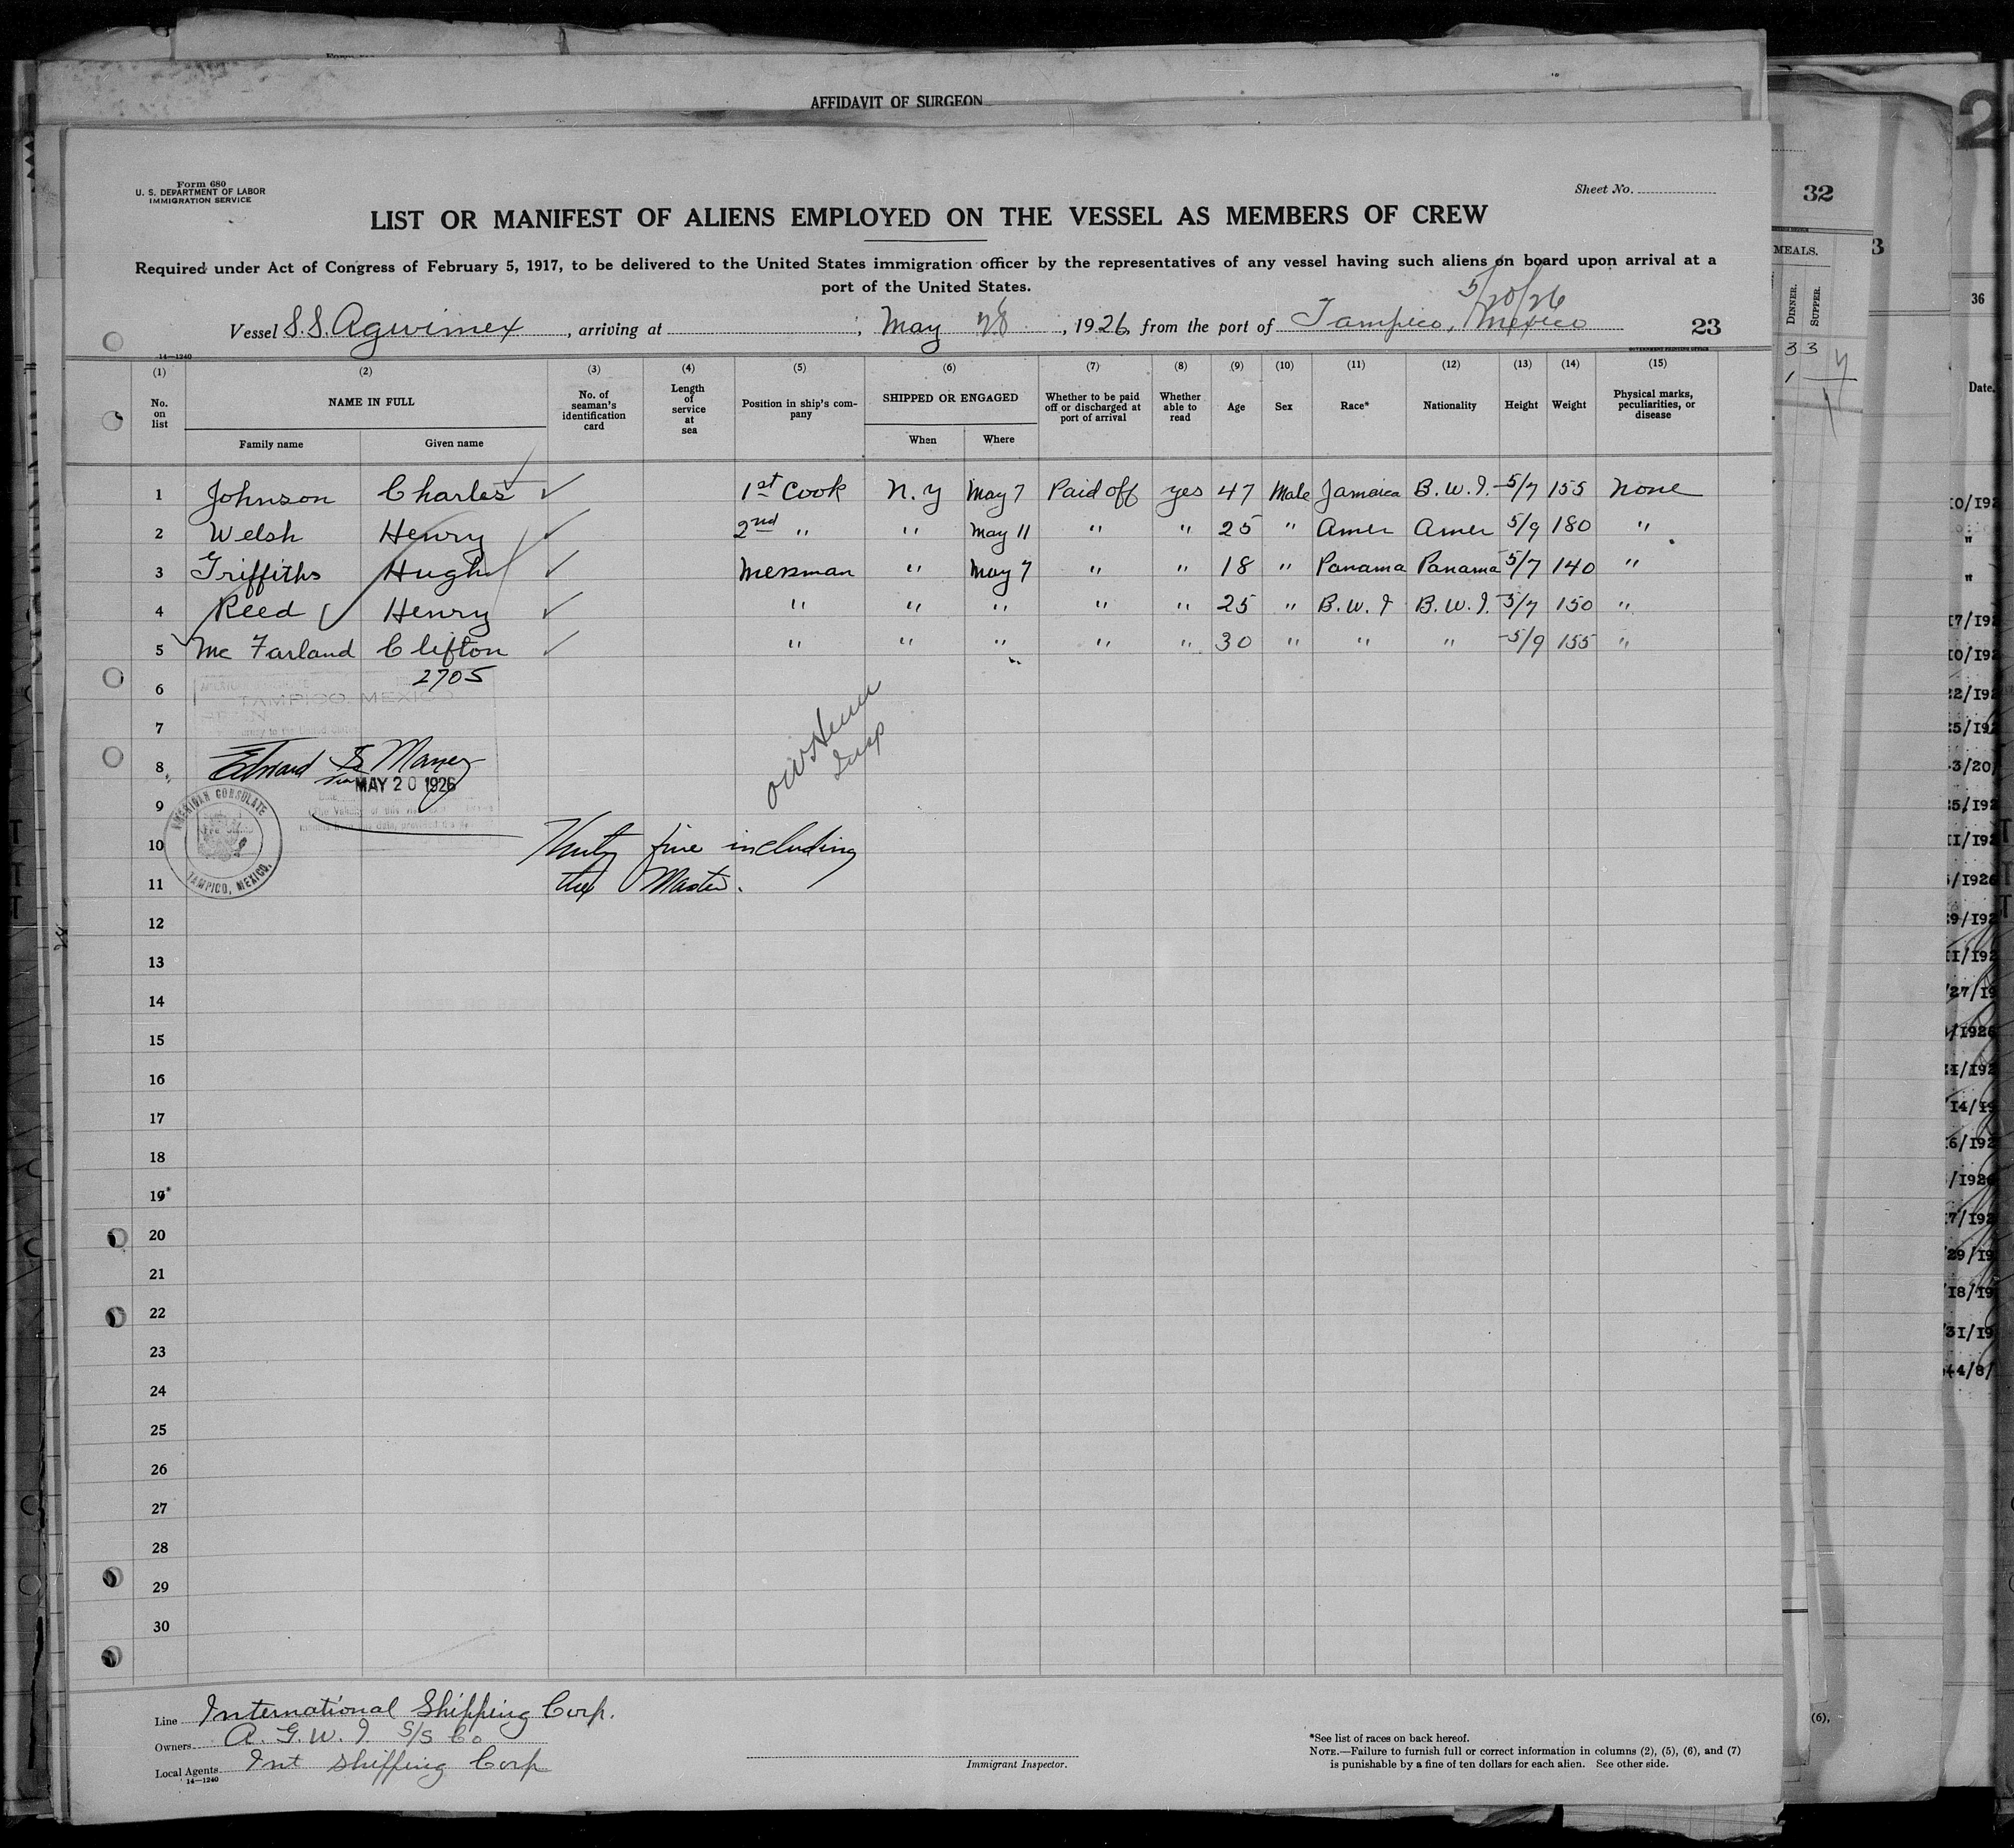 AFFIDAVIT OF SURGEON
Form 680
U. S. DEPARTMENT OF LABOR
IMMIGRATION SERVICE
Sheet No.
LIST OR MANIFEST OF ALIENS EMPLOYED ON THE VESSEL AS MEMBERS OF CREW
Required under Act of Congress of February 5, 1917, to be delivered to the United States immigration officer by the representatives of any vessel having such aliens on board upon arrival at a
port of the United States.
5/20/26
Vessel S.S. Agwimex, arriving at , May 28, 1926, from the port of Tampico, Mexico 23
14—1240 GOVERNMENT PRINTING OFFICE
(1) (2) (3) (4) (5) (6) (7) (8) (9) (10) (11) (12) (13) (14) (15)
No. on list NAME IN FULL Family name Given name No. of seaman's identification card Length of service at sea Position in ship's company SHIPPED OR ENGAGED When Where Whether to be paid off or discharged at port of arrival Whether able to read Age Sex Race* Nationality Height Weight Physical marks, peculiarities, or disease
1 Johnson Charles ✓ 1st Cook N.Y May 7 Paid off yes 47 Male Jamaica B.W.I. 5/7 155 none
2 Welsh Henry ✓ 2nd " " May 11 " " 25 " Amer Amer 5/9 180 "
3 Griffiths Hugh ✓ Messman " May 7 " " 18 " Panama Panama 5/7 140 "
4 Reed Henry ✓ " " " " " 25 " B.W.I B.W.I. 5/7 150 "
5 Mc Farland Clifton ✓ " " " " " 30 " " " 5/9 155 "
2705
6
TAMPICO, MEXICO
7
8 Edward S. Maney
MAY 20 1926
9
AMERICAN CONSULATE
TAMPICO, MEXICO.
Insp
10 Thirty five including
11 the Master.
12
13
14
15
16
17
18
19
20
21
22
23
24
25
26
27
28
29
30
Line International Shipping Corp.
Owners A. G. W. I. S/S Co
Local Agents Int Shipping Corp
14—1240
Immigrant Inspector.
*See list of races on back hereof.
NOTE.—Failure to furnish full or correct information in columns (2), (5), (6), and (7)
is punishable by a fine of ten dollars for each alien. See other side.
32
MEALS.
DINNER.
SUPPER.
3 3
1
(6),
2
36
Date.